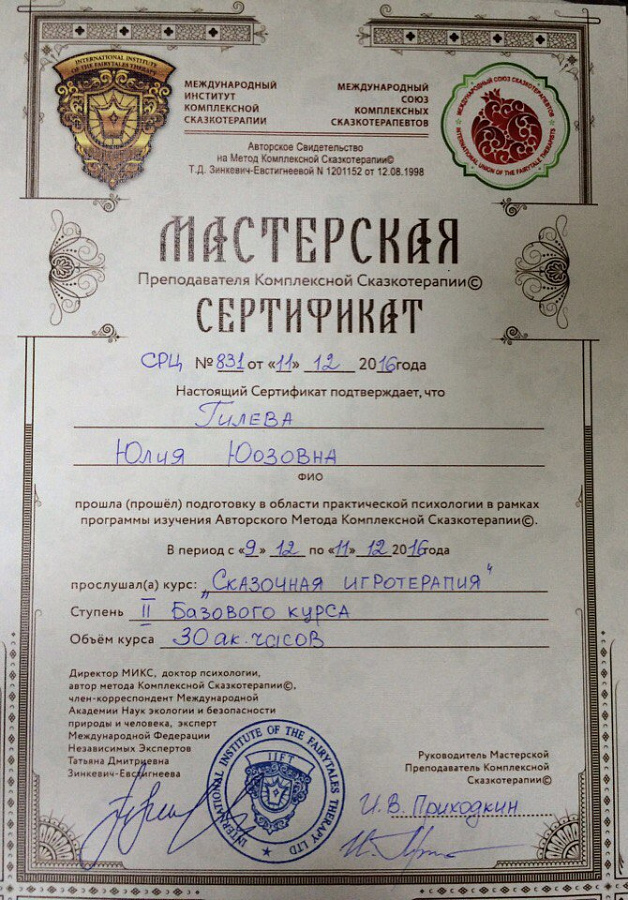 INTERNATIONAL INSTITUTE
OF THE FAIRYTALES THERAPY
МЕЖДУНАРОДНЫЙ
ИНСТИТУТ
КОМПЛЕКСНОЙ
СКАЗКОТЕРАПИИ
МЕЖДУНАРОДНЫЙ
СОЮЗ
КОМПЛЕКСНЫХ
СКАЗКОТЕРАПЕВТОВ
МЕЖДУНАРОДНЫЙ СОЮЗ СКАЗКОТЕРАПЕВТОВ
INTERNATIONAL UNION OF THE FAIRYTALE THERAPISTS
Авторское Свидетельство
на Метод Комплексной Сказкотерапии©
Т.Д. Зинкевич-Евстигнеевой N 1201152 от 12.08.1998
МАСТЕРСКАЯ
Преподавателя Комплексной Сказкотерапии©
СЕРТИФИКАТ
СРЦ №831 от «11» 12 2016 года
Настоящий Сертификат подтверждает, что
Гилева
Юлия Юозовна
ФИО
прошла (прошёл) подготовку в области практической психологии в рамках
программы изучения Авторского Метода Комплексной Сказкотерапии©.
В период с «9» 12 по «11» 12 2016года
прослушал(а) курс: „Сказочная игротерапия"
Ступень II Базового курса
Объём курса 30 ак. часов
Директор МИКС, доктор психологии,
автор метода Комплексной Сказкотерапии©,
член-корреспондент Международной
Академии Наук экологии и безопасности
природы и человека, эксперт
Международной Федерации
Независимых Экспертов
Татьяна Дмитриевна
Зинкевич-Евстигнеева
INTERNATIONAL INSTITUTE OF THE FAIRYTALES THERAPY LTD
IIFT
Руководитель Мастерской
Преподаватель Комплексной
Сказкотерапии©
И.В. Приходкин